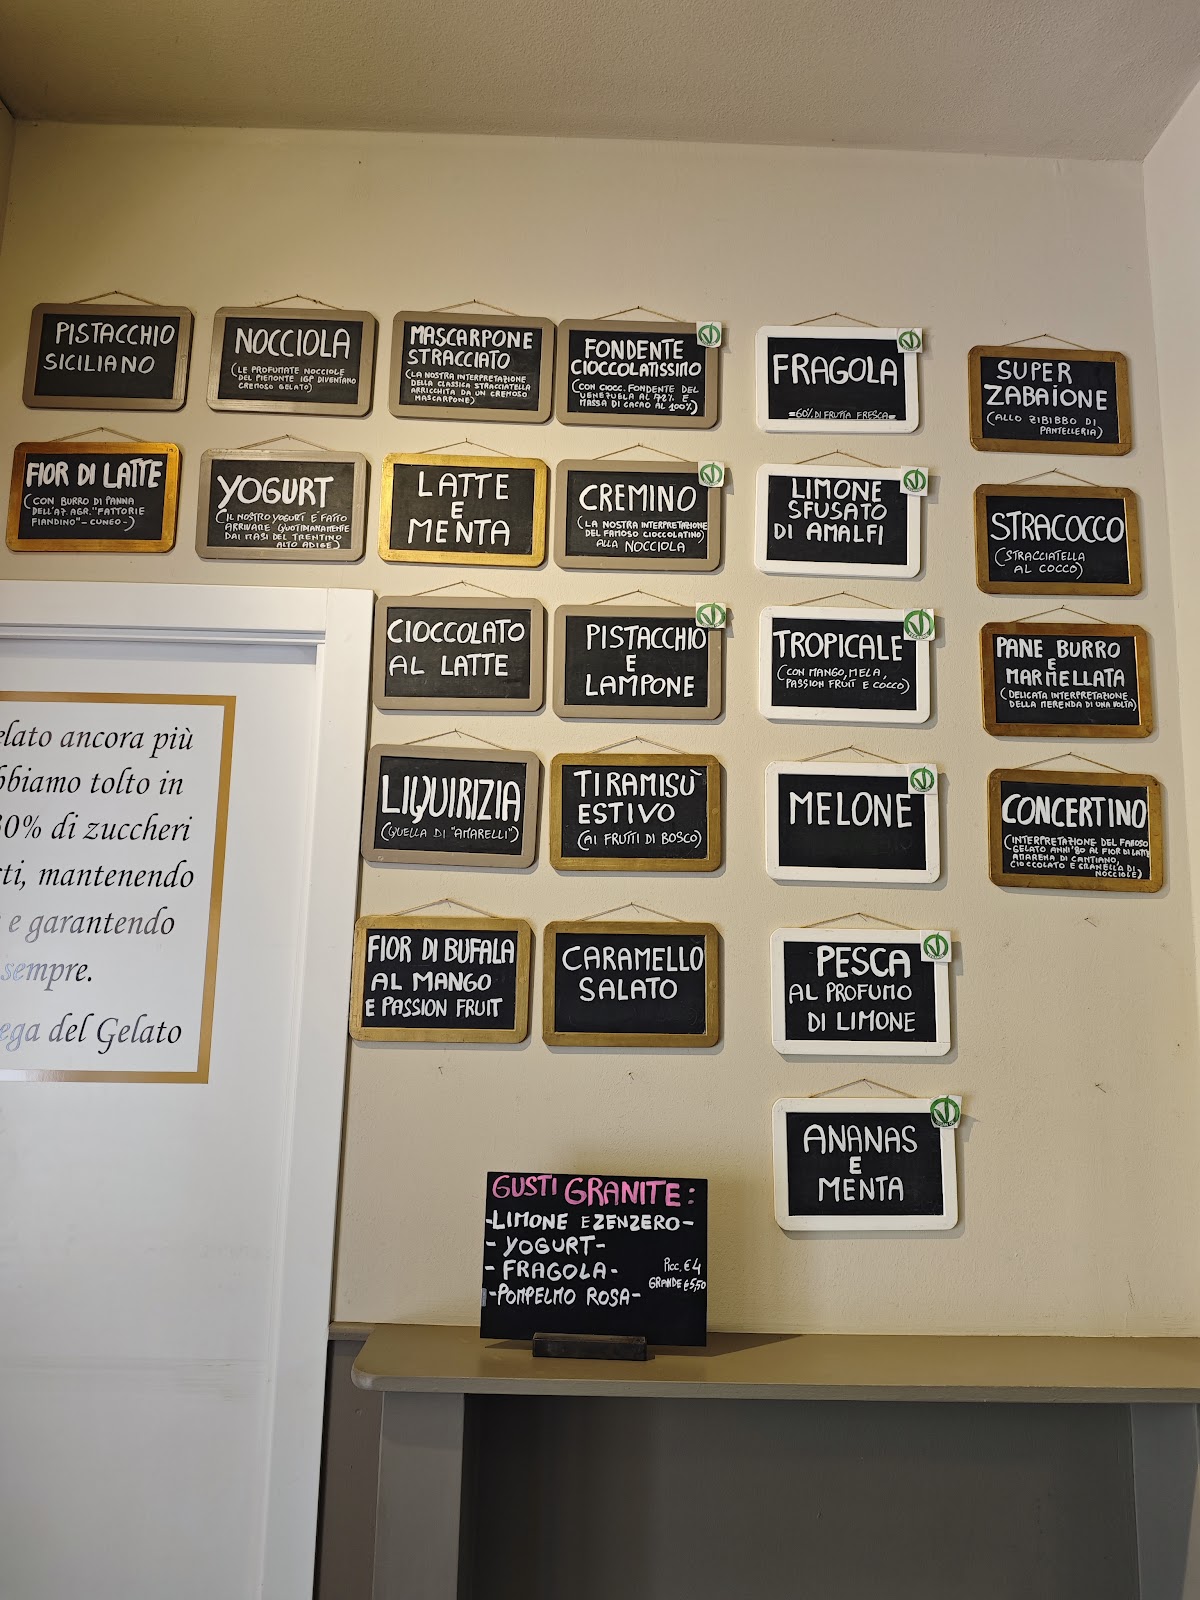 PISTACCHIO
SICILIANO
NOCCIOLA
(LE PROFUMATE NOCCIOLE
DEL PIEMONTE IGP DIVENTANO
CREMOSO GELATO)
MASCARPONE
STRACCIATO
(LA NOSTRA INTERPRETAZIONE
DELLA CLASSICA STRACCIATELLA
ARRICCHITA DA UN CREMOSO
MASCARPONE)
FONDENTE
CIOCCOLATISSIMO
(CON CIOCC. FONDENTE DEL
VENEZUELA AL 72% E
MASSA DI CACAO AL 100%)
FRAGOLA
=60% DI FRUTTA FRESCA=
SUPER
ZABAIONE
(ALLO ZIBIBBO DI
PANTELLERIA)
FIOR DI LATTE
(CON BURRO DI PANNA
DELL'AZ. AGR. "FATTORIE
FIANDINO" - CUNEO -)
YOGURT
(IL NOSTRO YOGURT E' FATTO
ARRIVARE QUOTIDIANAMENTE
DAI MASI DEL TRENTINO
ALTO ADIGE)
LATTE
E
MENTA
CREMINO
(LA NOSTRA INTERPRETAZIONE
DEL FAMOSO CIOCCOLATINO)
ALLA NOCCIOLA
LIMONE
SFUSATO
DI AMALFI
STRACOCCO
(STRACCIATELLA
AL COCCO)
CIOCCOLATO
AL LATTE
PISTACCHIO
E
LAMPONE
TROPICALE
(CON MANGO, MELA,
PASSION FRUIT E COCCO)
PANE BURRO
E
MARMELLATA
(DELICATA INTERPRETAZIONE
DELLA MERENDA DI UNA VOLTA)
LIQUIRIZIA
(QUELLA DI "AMARELLI")
TIRAMISÙ
ESTIVO
(AI FRUTTI DI BOSCO)
MELONE
CONCERTINO
(INTERPRETAZIONE DEL FAMOSO
GELATO ANNI '80 AL FIOR DI LATTE
AMARENA DI CANTIANO,
CIOCCOLATO E GRANELLA DI
NOCCIOLE)
FIOR DI BUFALA
AL MANGO
E PASSION FRUIT
CARAMELLO
SALATO
PESCA
AL PROFUMO
DI LIMONE
ANANAS
E
MENTA
elato ancora più
bbiamo tolto in
30% di zuccheri
sti, mantenendo
e garantendo
sempre.
ega del Gelato
GUSTI GRANITE:
-LIMONE E ZENZERO-
- YOGURT-
- FRAGOLA-
-POMPELMO ROSA-
PICC. €4
GRANDE €5,50